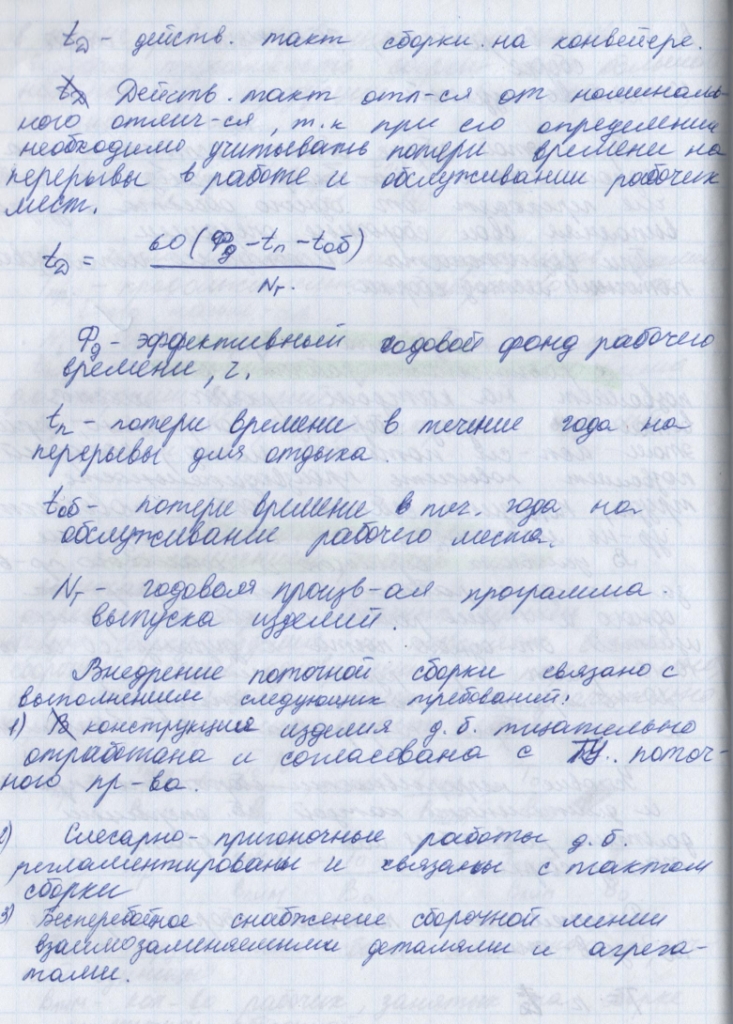 tд - действ. такт сборки на конвейере.
Действ. такт отл-ся от номиналь-
ного отлич-ся, т.к при его определении
необходимо учитывать потери времени на
перерывы в работе и обслуживании рабочих
мест.
tд = 60 (Фд - tп - tоб)
Nг.
Фд - эффективный годовой фонд рабочего
времени, ч.
tп - потери времени в течение года на
перерывы для отдыха.
tоб - потери времени в теч. года на
обслуживание рабочего места.
Nг - годовая произв-ая программа
выпуска изделий.
Внедрение поточной сборки связано с
выполнением следующих требований:
1) конструкция изделия д.б. тщательно
отработана и согласована с поточ-
ного пр-ва.
2) Слесарно-пригоночные работы д.б.
регламентированы и связаны с тактом
сборки
3) Бесперебойное снабжение сборочной линии
взаимозаменяемыми деталями и агрега-
тами.